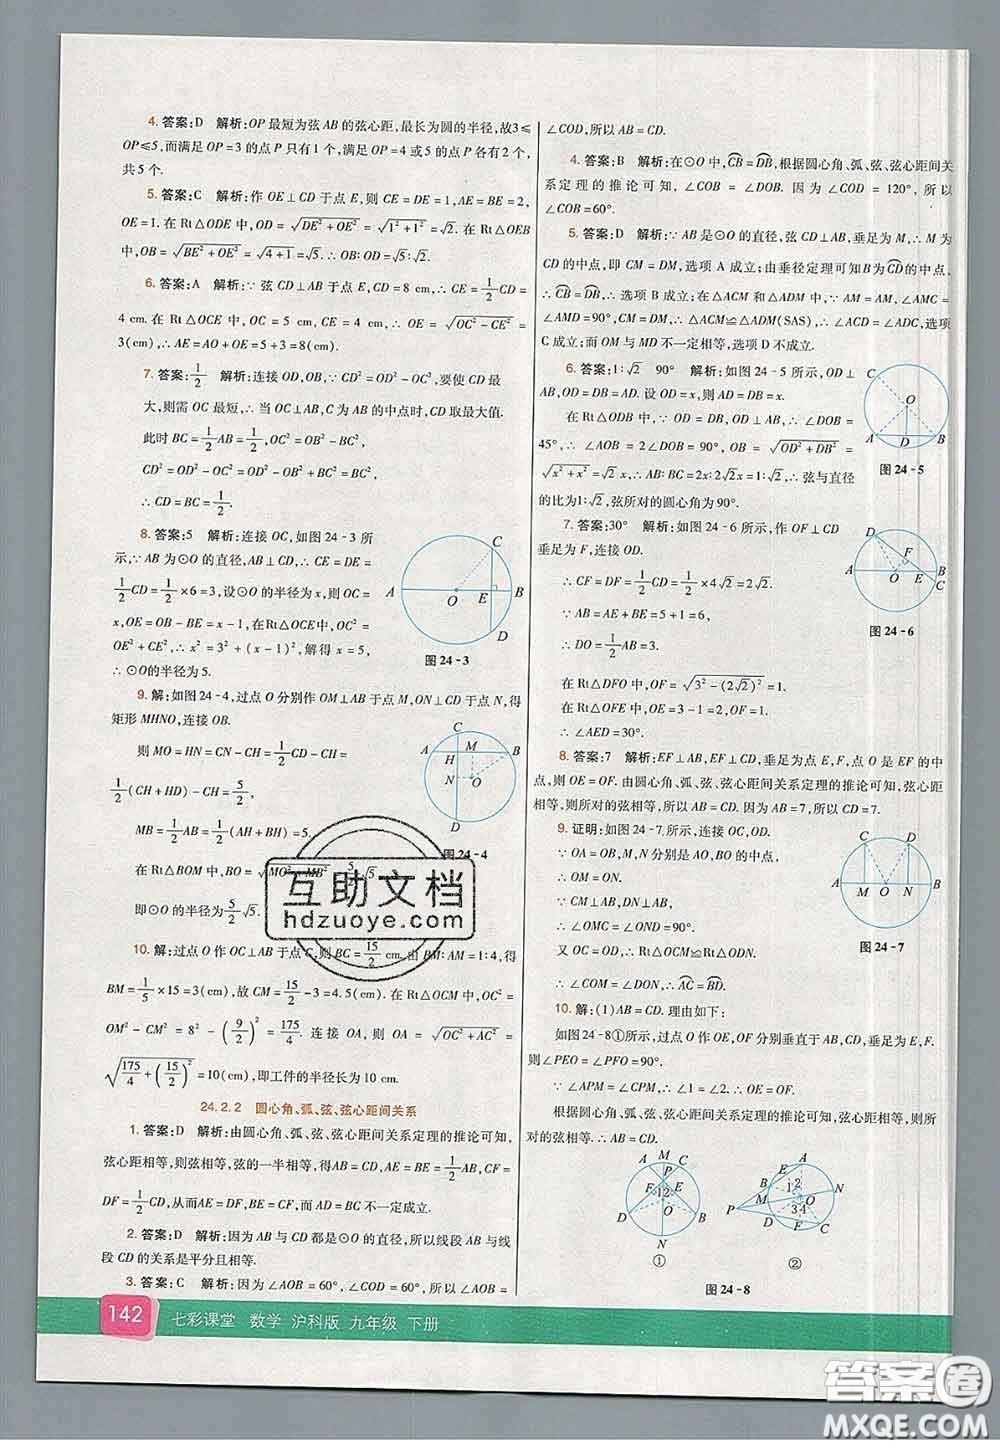 4. 答案:D 解析:OP最短为弦AB的弦心距,最长为圆的半径,故3≤
OP≤5,而满足OP=3的点P只有1个,满足OP=4或5的点P各有2个,
共5个.
5. 答案:C 解析:作OE⊥CD于点E,则CE=DE=1,AE=BE=2,
OE=1.在Rt△ODE中,OD=√(DE²+OE²)=√(1²+1²)=√2.在Rt△OEB
中,OB=√(BE²+OE²)=√(4+1)=√5.∴OB:OD=√5:√2.
6. 答案:A 解析:∵弦CD⊥AB于点E,CD=8 cm,∴CE=1/2CD=
4 cm.在Rt△OCE中,OC=5 cm,CE=4 cm,∴OE=√(OC²−CE²)=
3(cm),∴AE=AO+OE=5+3=8(cm).
7. 答案:1/2 解析:连接OD,OB,∵CD²=OD²−OC²,要使CD最
大,则需OC最短,∴当OC⊥AB,C为AB的中点时,CD取最大值.
此时BC=1/2AB=1/2,OC²=OB²−BC²,
CD²=OD²−OC²=OD²−OB²+BC²=BC²,
∴CD=BC=1/2.
8. 答案:5 解析:连接OC,如图24-3所
示,∵AB为⊙O的直径,AB⊥CD,∴CE=DE=
1/2CD=1/2×6=3,设⊙O的半径为x,则OC=
x,OE=OB−BE=x−1,在Rt△OCE中,OC²=
OE²+CE²,∴x²=3²+(x−1)²,解得x=5,
∴⊙O的半径为5.
C
O E
A B
D
图24-3
9. 解:如图24-4,过点O分别作OM⊥AB于点M,ON⊥CD于点N,得
矩形MHNO,连接OB.
则MO=HN=CN−CH=1/2CD−CH=
1/2(CH+HD)−CH=5/2,
MB=1/2AB=1/2(AH+BH)=5.
在Rt△BOM中,BO=√(MO²+MB²)=5/2√5,
即⊙O的半径为5/2√5.
C
A M B
H
N O
D
图24-4
10. 解:过点O作OC⊥AB于点C,则BC=15/2 cm.由BM:AM=1:4,得
BM=1/5×15=3(cm),故CM=15/2−3=4.5(cm).在Rt△OCM中,OC²=
OM²−CM²=8²−(9/2)²=175/4.连接OA,则OA=√(OC²+AC²)=
√(175/4+(15/2)²)=10(cm),即工件的半径长为10 cm.
24.2.2 圆心角、弧、弦、弦心距间关系
1. 答案:D 解析:由圆心角、弧、弦、弦心距间关系定理的推论可知,
弦心距相等,则弦相等,弦的一半相等,即AB=CD,AE=BE=1/2AB,CF=
DF=1/2CD,从而AE=DF,BE=CF,而AE=DE不一定成立.
2. 答案:D 解析:因为AB与CD都是⊙O的直径,所以线段AB与线
段CD的关系是平分且相等.
3. 答案:C 解析:因为∠AOB=60°,∠COD=60°,所以∠AOB=
∠COD,所以AB=CD.
4. 答案:B 解析:在⊙O中,C͡B=D͡B,根据圆心角、弧、弦、弦心距间关
系定理的推论可知,∠COB=∠DOB.因为∠COD=120°,所以
∠COB=60°.
5. 答案:D 解析:∵AB是⊙O的直径,弦CD⊥AB,垂足为M,∴M为
CD的中点,即CM=DM,选项A成立;由垂径定理可知B为C͡D的中点,
∴C͡B=D͡B,∴选项B成立;在△ACM和△ADM中,∵AM=AM,∠AMC=
∠AMD=90°,CM=DM,∴△ACM≌△ADM(SAS),∴∠ACD=∠ADC,选项
C成立;而OM与MD不一定相等,选项D不成立.
6. 答案:1:√2 90° 解析:如图24-5所示,OD⊥
AB,OD=DB,OD=AD.设OD=x,则AD=DB=x.
在Rt△ODB中,∵OD=DB,OD⊥AB,∴∠DOB=
45°,∴∠AOB=2∠DOB=90°,OB=√(OD²+DB²)=
√(x²+x²)=√2x,∴AB:BC=2x:2√2x=1:√2,∴弦与直径
的比为1:√2,弦所对的圆心角为90°.
C
O
A D B
图24-5
7. 答案:30° 解析:如图24-6所示,作OF⊥CD
垂足为F,连接OD.
∴CF=DF=1/2CD=1/2×4√2=2√2.
∵AB=AE+BE=5+1=6,
∴DO=1/2AB=3.
在Rt△DFO中,OF=√(3²−(2√2)²)=1.
在Rt△OFE中,OE=3−1=2,OF=1.
∴∠AED=30°.
D
F
A O E B
C
图24-6
8. 答案:7 解析:EF⊥AB,EF⊥CD,垂足为点E,F,点O是EF的中
点,则OE=OF.由圆心角、弧、弦、弦心距间关系定理的推论可知,弦心距
相等,则所对的弦相等,所以AB=CD.因为AB=7,所以CD=7.
9. 证明:如图24-7所示,连接OC,OD.
∵OA=OB,M,N分别是AO,BO的中点,
∴OM=ON.
∵CM⊥AB,DN⊥AB,
∴∠OMC=∠OND=90°.
又OC=OD,∴Rt△OCM≌Rt△ODN.
∴∠COM=∠DON,∴A͡C=B͡D.
C D
A M O N B
图24-7
10. 解:(1)AB=CD.理由如下:
如图24-8①所示,过点O作OE,OF分别垂直于AB,CD,垂足为E,F.
则∠PEO=∠PFO=90°.
∵∠APM=∠CPM,∴∠1=∠2,∴OE=OF.
根据圆心角、弧、弦、弦心距间关系定理的推论可知,弦心距相等,则所
对的弦相等.∴AB=CD.
M
A C
P
F 12 E
O
D B
N
①
A
E
B 12
M O N
P 34
D F C
②
图24-8
互助文档
hdzuoye.com
142 七彩课堂 数学 沪科版 九年级 下册
答案圈
MXQE.COM